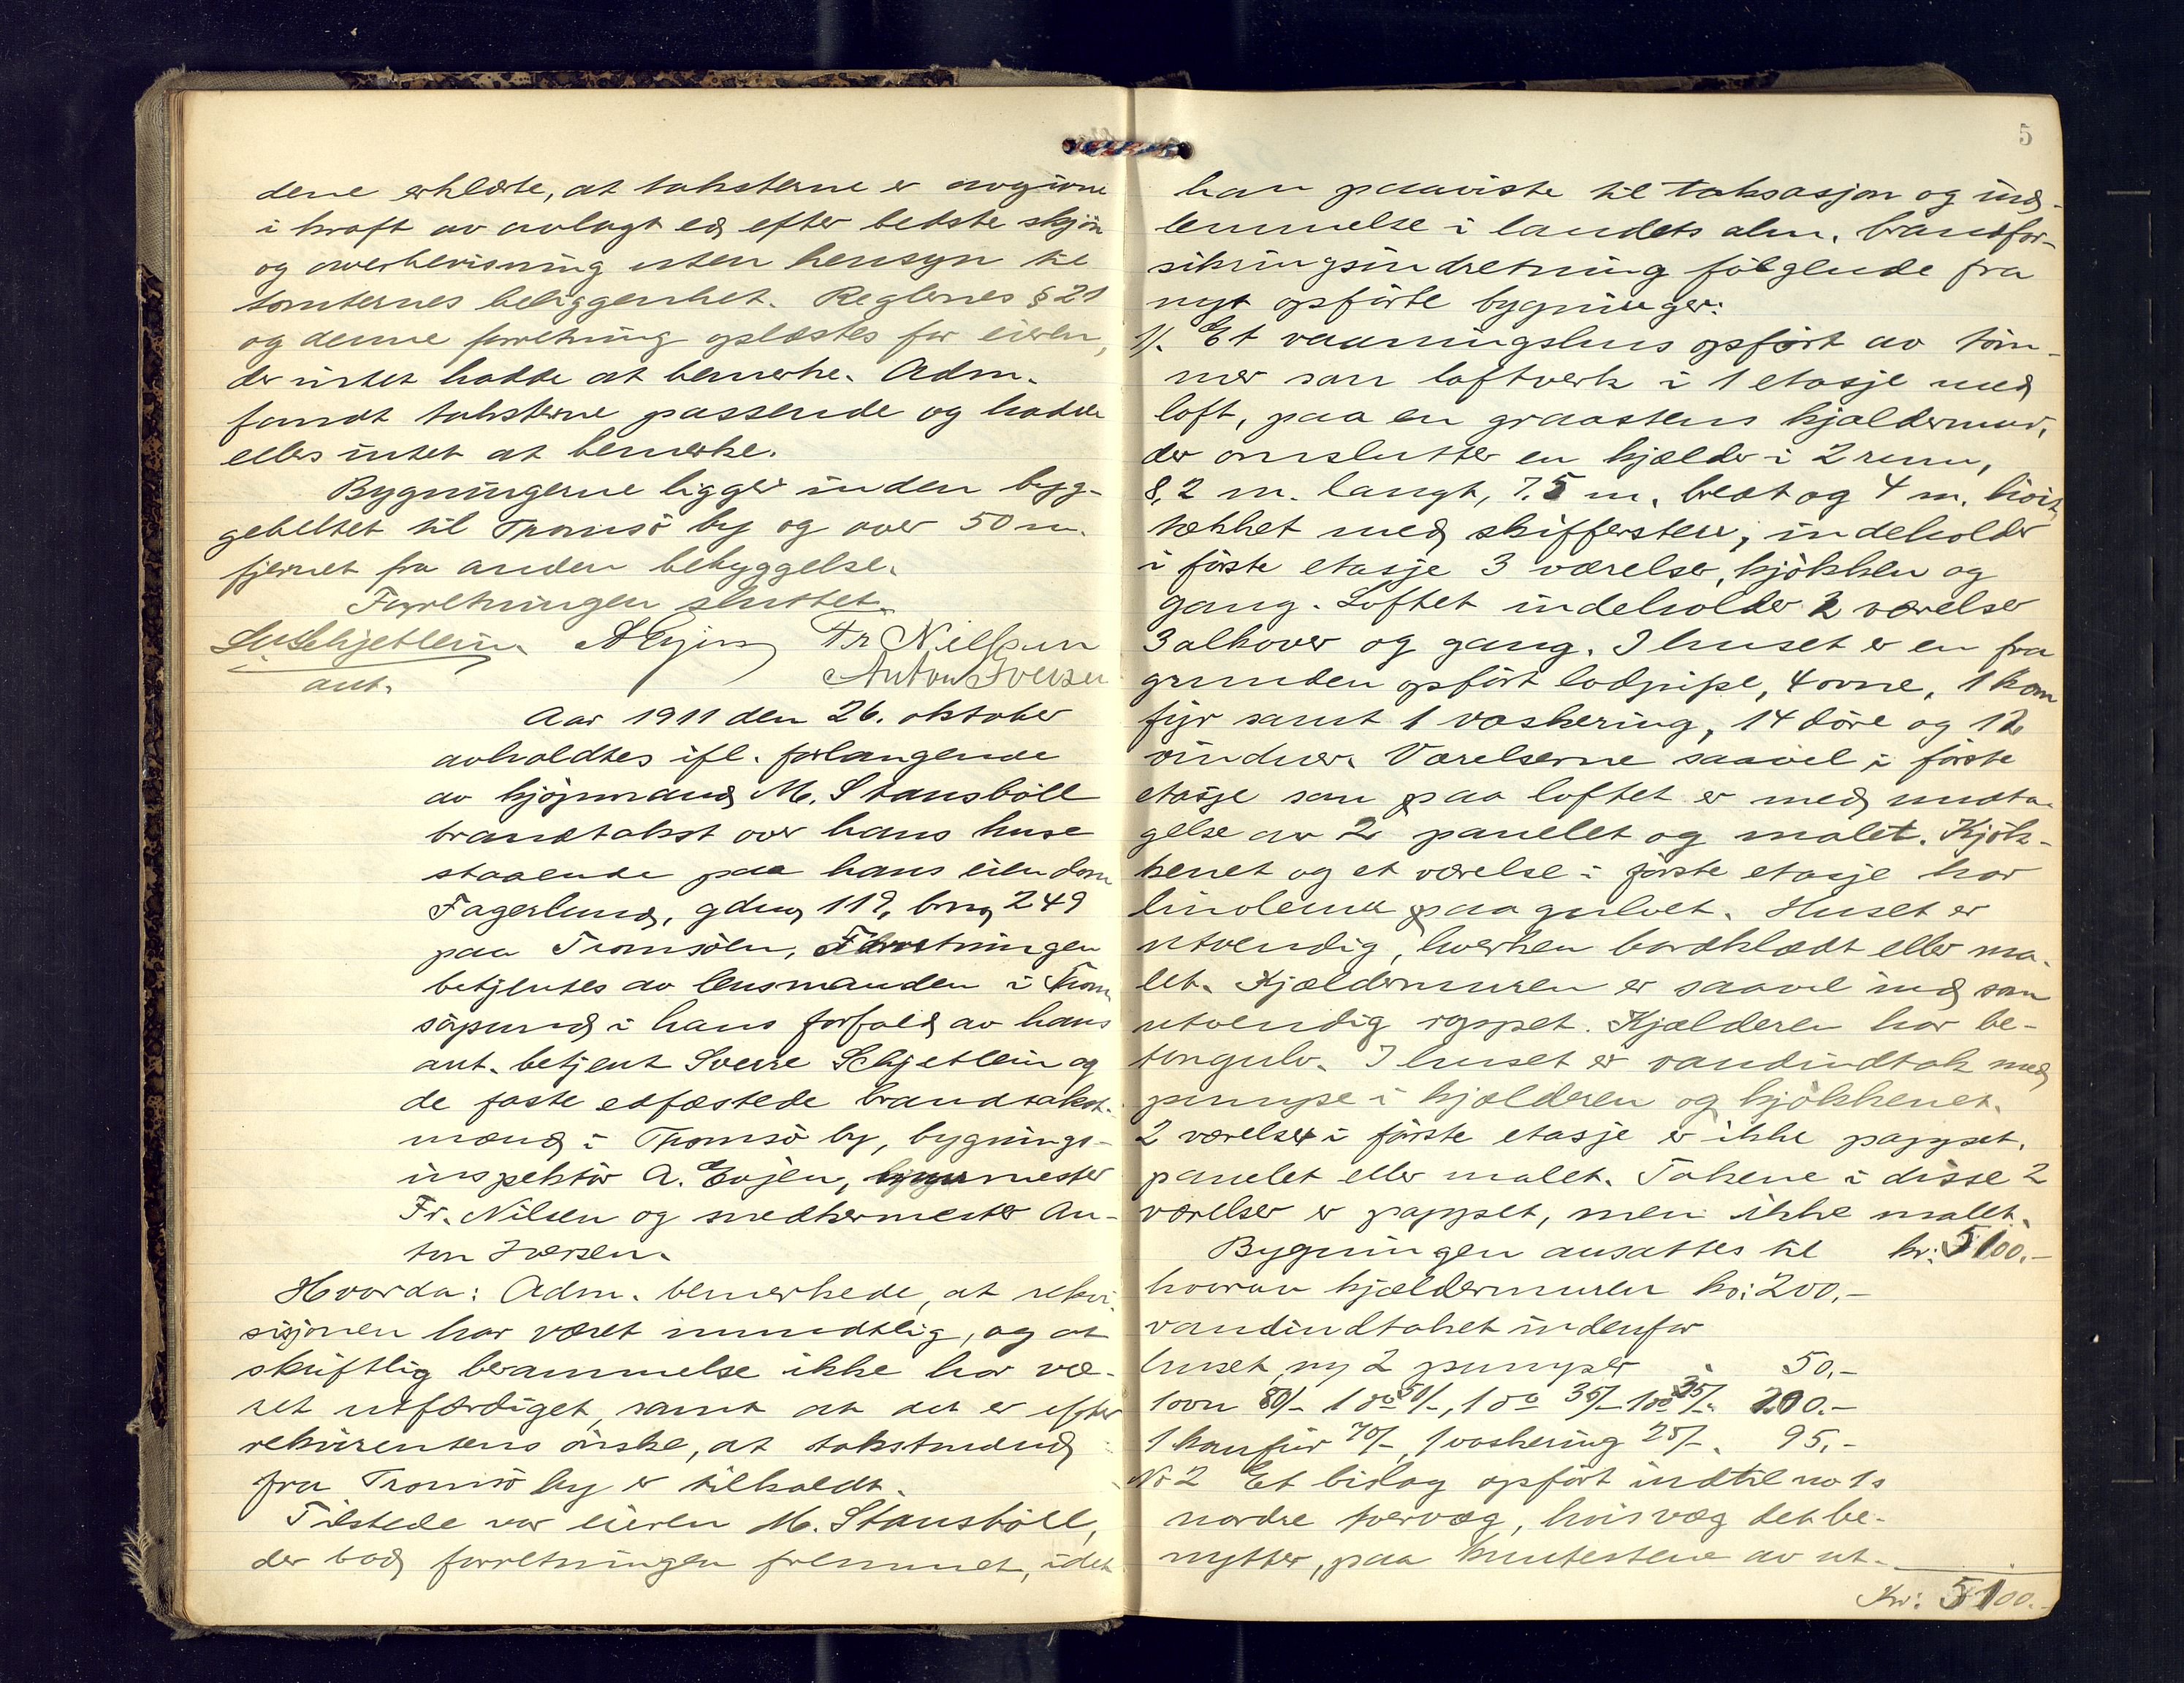 dene erklærte, at taksterne er avgivne
i kraft av avlagt ed efter bedste skjön
og overbevisning uten hensyn til
tomternes beliggenhet. Reglernes § 21
og denne forretning oplæstes for eieren,
der intet hadde at bemerke. Adm.
fandt taksterne passende og hadde
ellers intet at bemerke.
Bygningerne ligger inden byg-
gebeltet til Tromsö by og over 50 m.
fjernet fra anden bebyggelse.
Forretningen sluttet.
Schjetlein. A Evjen Fr Nilsen
aut. Anton Iversen
Aar 1911 den 26. oktober
avholdtes ifl. forlangende
av kjöpmand M. Stensböll
brandtakst over hans huse
staaende paa hans eiendom
Fagerlund, gdno 119, brno 249
paa Tromsöen, Forretningen
betjentes av lensmanden i Trom
söysund i hans forfald av hans
aut. betjent Sverre Schjetlein og
de faste edfæstede brandtakst-
mænd i Tromsö by, bygnings-
inspektör A. Evjen, mester
Fr. Nilsen og snedkermester An-
ton Iversen.
Hvorda: Adm. bemerkede, at rekvi-
sisjonen har været mundtlig, og at
skriftlig berammelse ikke har væ-
ret utfærdiget, samt at det er efter
rekvirentens önske, at takstmænd
fra Tromsö by er tilkaldt.
Tilstede var eieren M. Stensböll,
der bad forretningen fremmet, idet
5
han paaviste til taksasjon og ind-
lemmelse i landets alm. brandfor-
sikringsindretning fölgende fra
nyt opförte bygninger:
1/. Et vaaningshus opfört av töm-
mer som loftverk i 1 etasje med
loft, paa en graastens kjældermur,
der omslutter en kjælder i 2 rum,
8,2 m. langt, 7.5 m. bredt og 4 m. höit,
tækket med skiffersten, indeholder
i förste etasje 3 værelser, kjökken og
gang. Loftet indeholder 2 værelser
3 alkover og gang. I huset er en fra
grunden opfört lodpipe, 4 ovne, 1 kom
fyr samt 1 vaskering, 14 döre og 12
vinduer. Værelserne saavel i förste
etasje som paa loftet er med undta-
gelse av 2 panelet og malet. Kjök-
kenet og et værelse i förste etasje har
linoleum paa gulvet. Huset er
utvendig, hverken bordklædt eller ma-
let. Kjældermuren er saavel ind som
utvendig rappet. Kjælderen har be-
tongulv. I huset er vandindtak med
pumpe i kjælderen og kjökkenet.
2 værelser i förste etasje er ikke pappet,
panelet eller malet. Takene i disse 2
værelser er pappet, men ikke malet.
Bygningen ansattes til kr: 5100.-
hvorav kjældermuren kr: 200,-
vandindtaket indenfor
huset, og 2 pumper " 50,-
1 ovn 80/- 1 do 50/-, 1 do 35/- 1 do 35/- 200.-
1 komfür 70/-, 1 vaskering 25/-. 95,-
No 2 Et bislag opfört indtil no 1s
nordre tvervæg, hvis væg det be-
nytter, paa av ut-
Kr: 5100.-